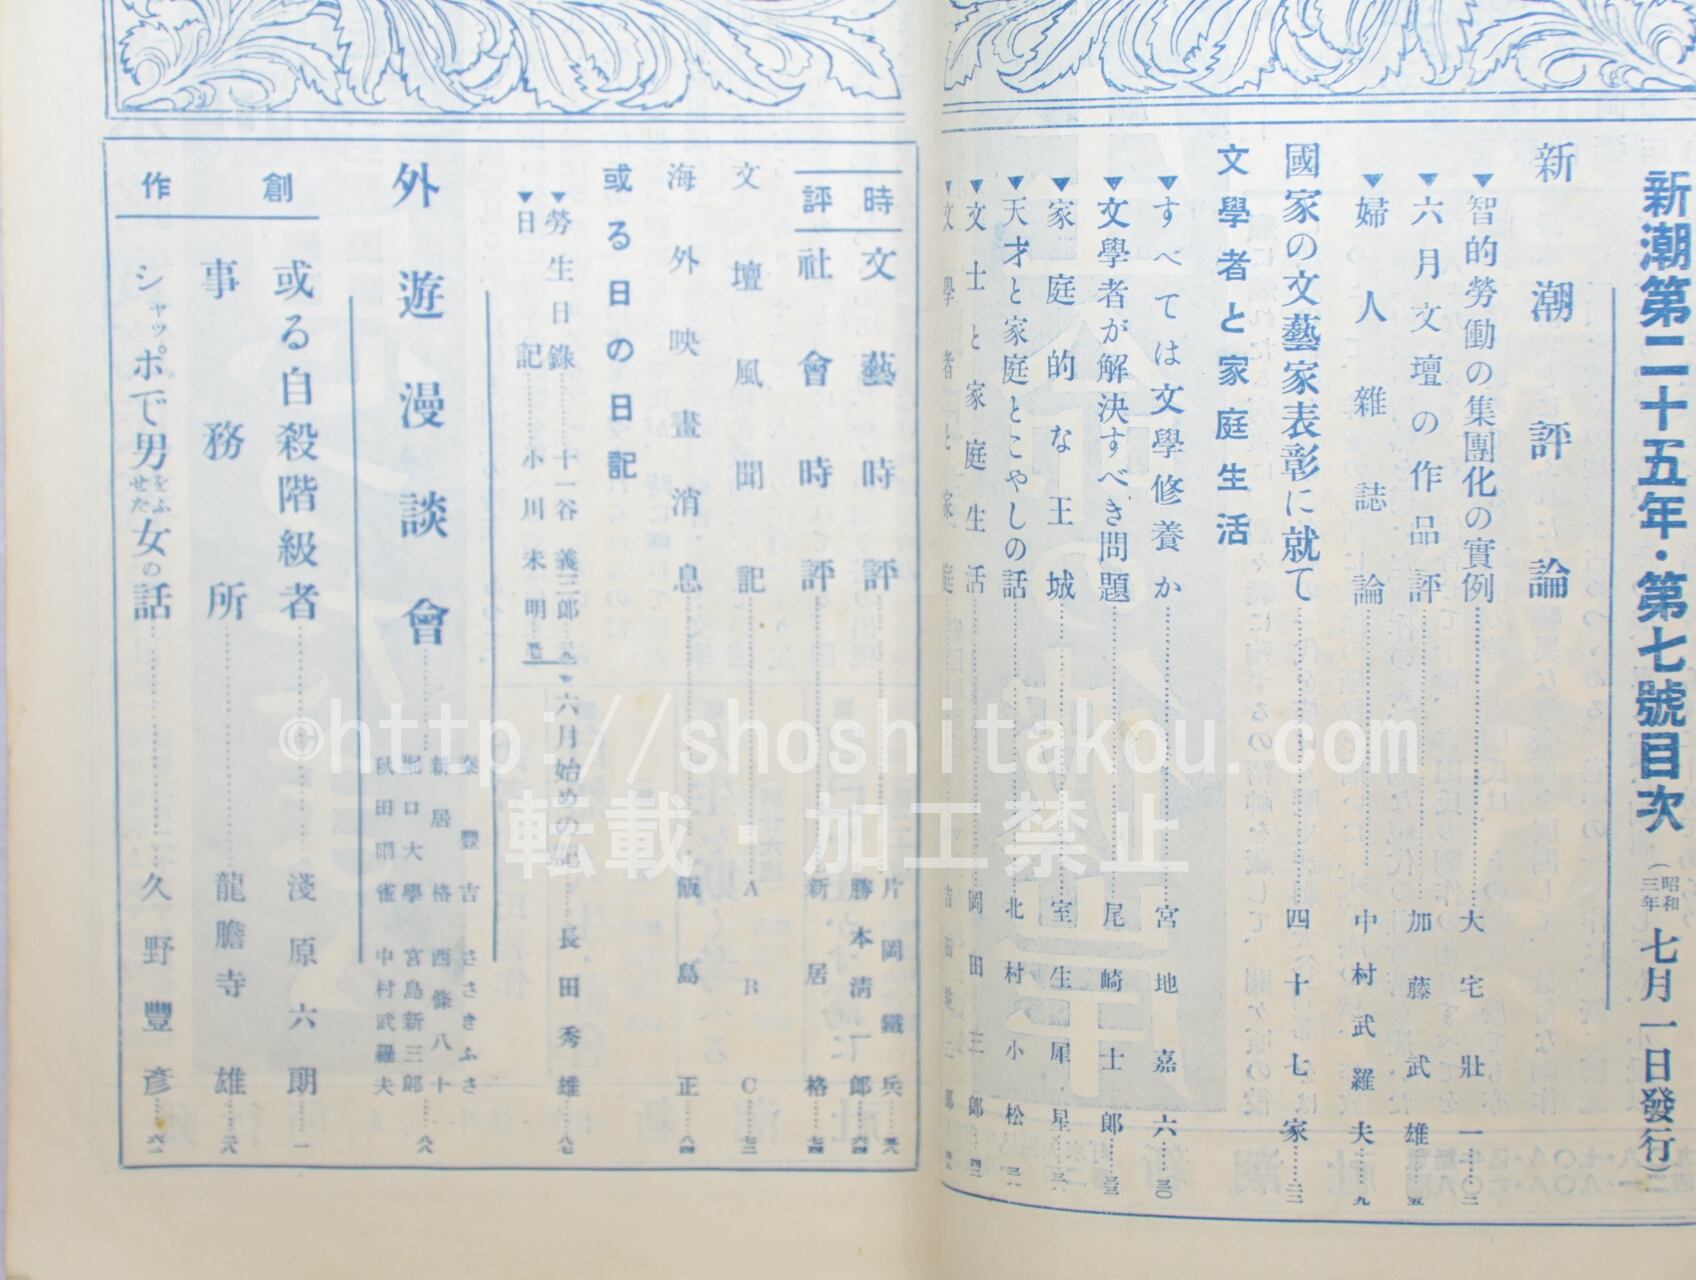 新潮第二十五年・第七號目次(昭和三年七月一日發行)
新潮評論
▼智的勞働の集團化の實例……大宅壯一…二
▼六月文壇の作品評……加藤武雄…五
▼婦人雜誌論……中村武羅夫…九
國家の文藝家表彰に就て……四十七家…三
文學者と家庭生活
▼すべては文學修養か……宮地嘉六…三〇
▼文學者が解決すべき問題……尾崎士郎…三三
▼家庭的な王城……室生犀星
▼天才と家庭とこやしの話……北村小松
▼文士と家庭生活……岡田三郎
▼文學者と家庭
時評
文藝時評……片岡鐵兵…五八
勝本清一郎…六四
社會時評……新居格…七四
文壇風聞記……ABC…七三
海外映畫消息……飯島正…八四
或る日の日記
▼勞生日錄……十一谷義三郎
▼日記……小川未明
▼六月始めの記……長田秀雄…八七
外遊漫談會……
秦豐吉 ささきふさ
新居格 西條八十
堀口大學 宮島新三郎
秋田雨雀 中村武羅夫
…八八
創作
或る自殺階級者……淺原六朗…一
事務所……龍膽寺雄…二八
シャッポで男をふせた女の話……久野豐彥
©http://shoshitakou.com
転載・加工禁止